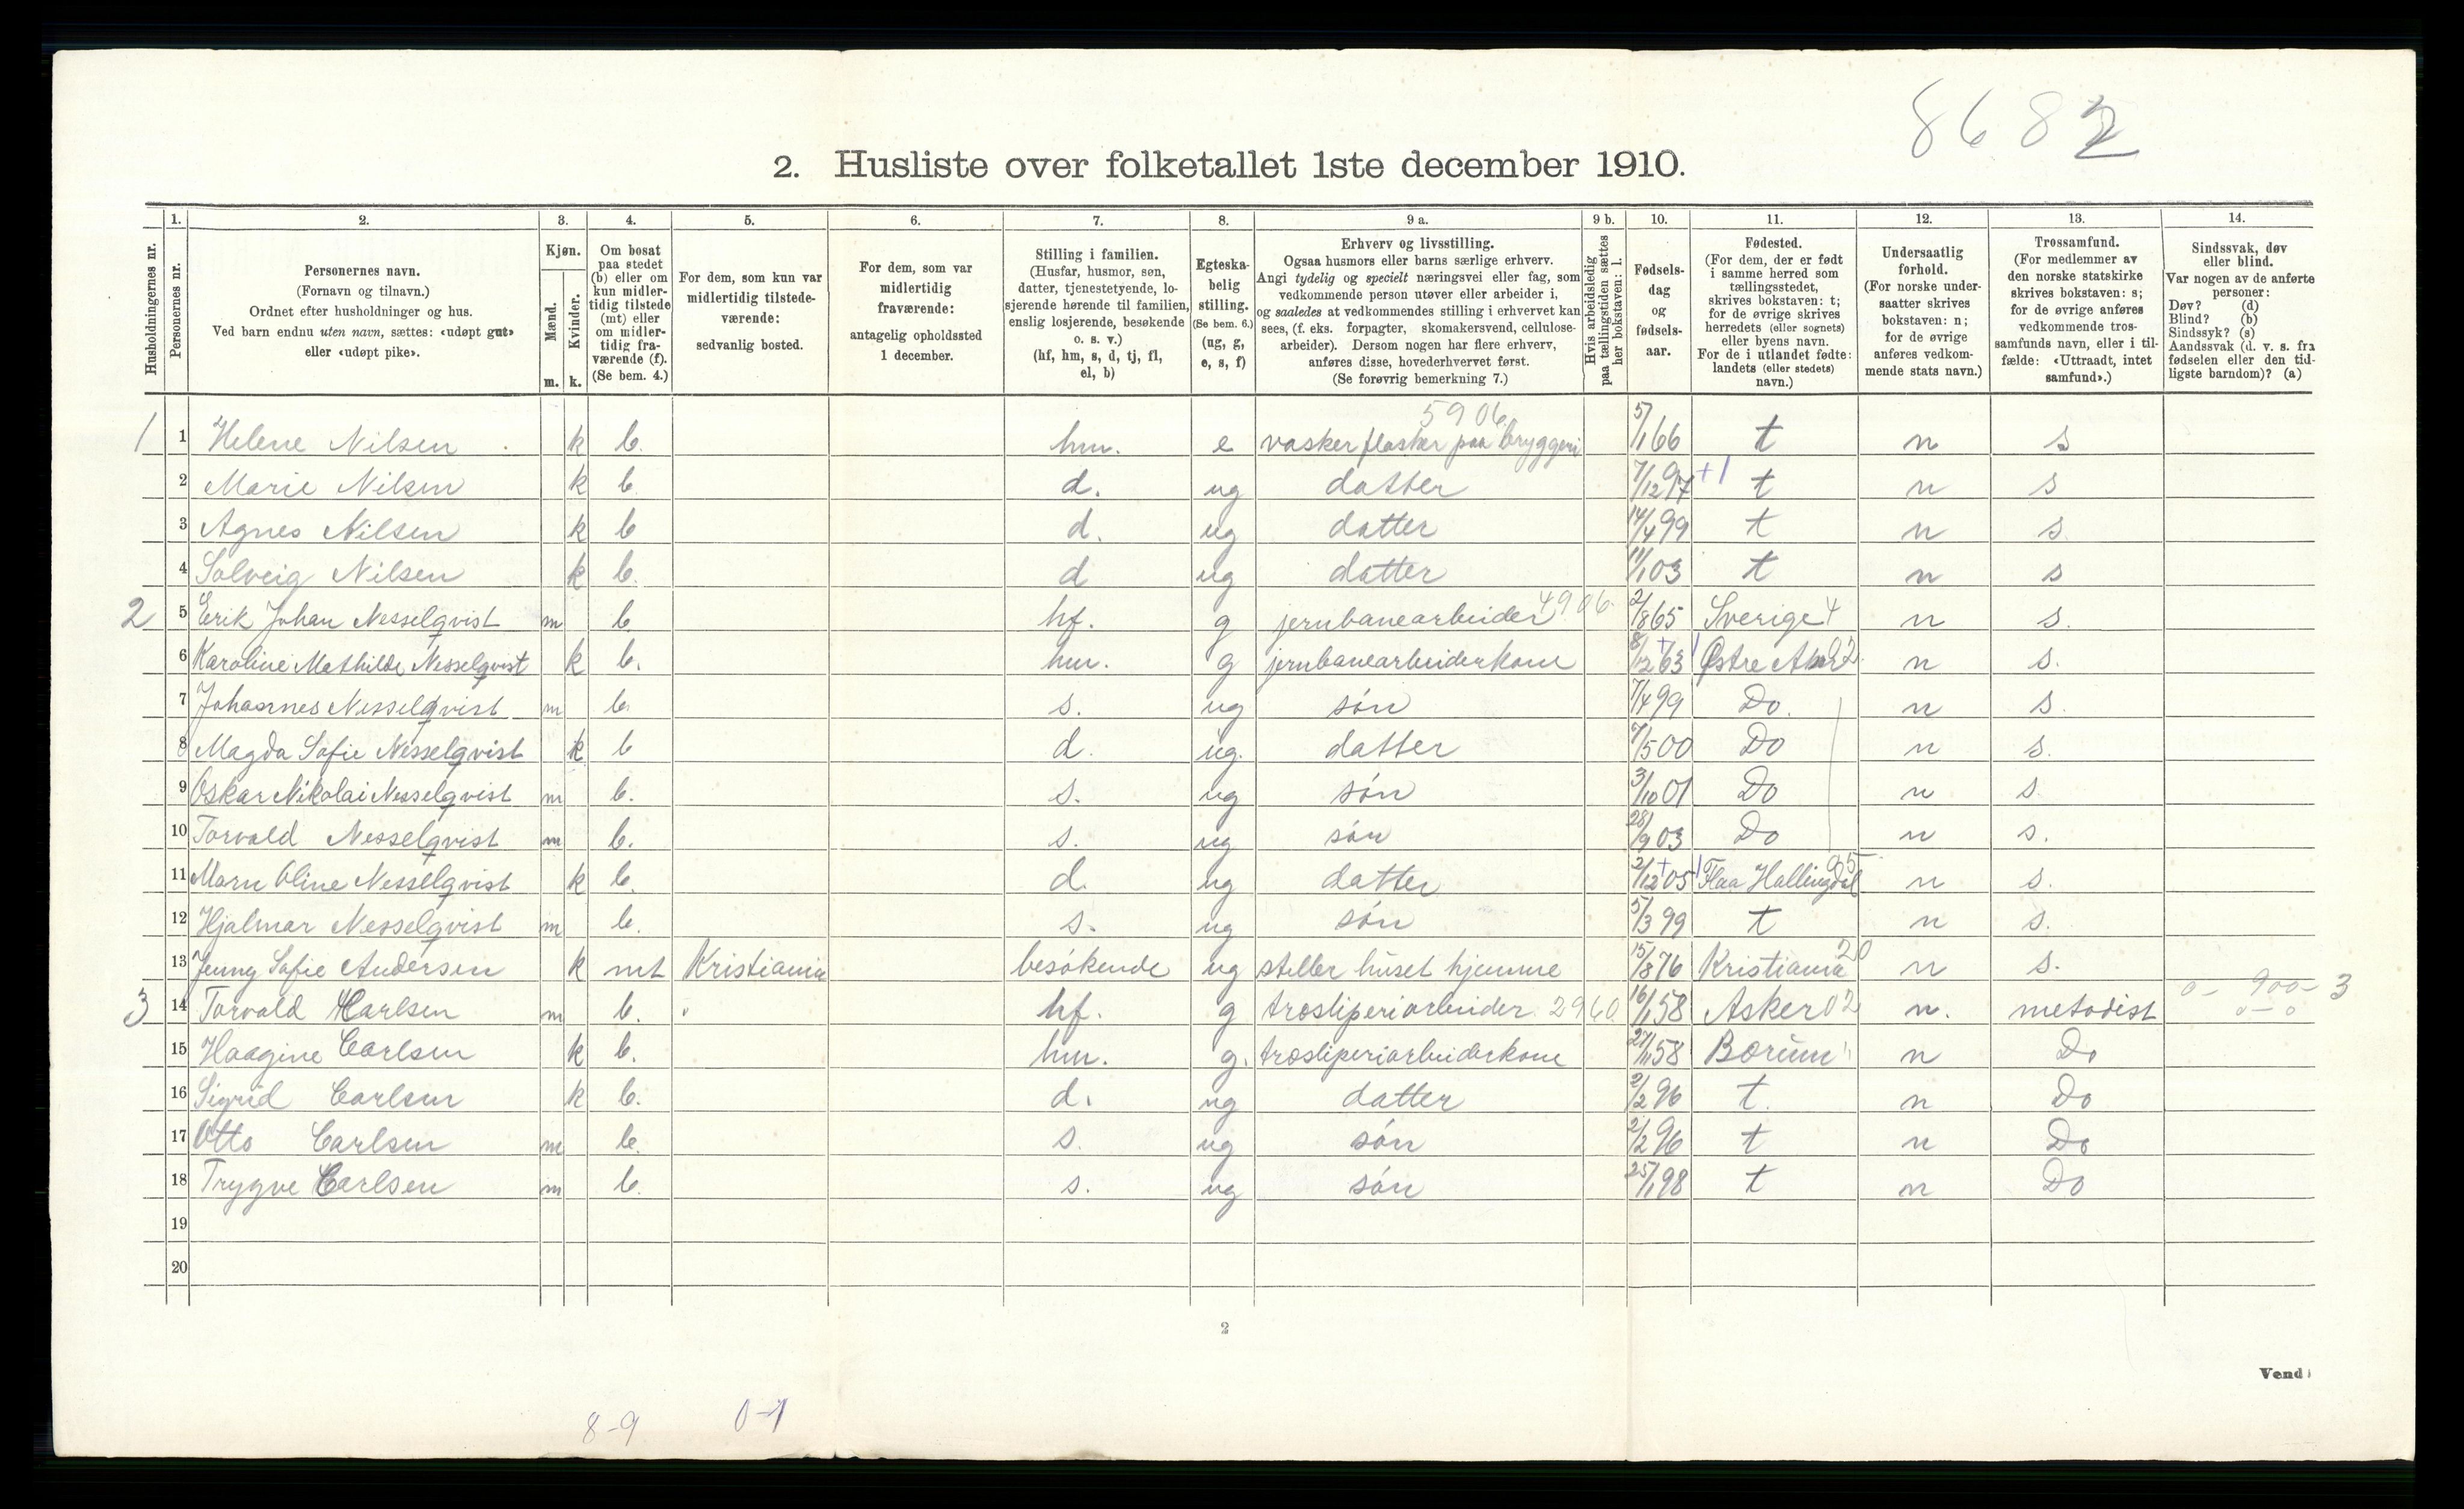 8682
2. Husliste over folketallet 1ste december 1910.
Husholdningernes nr.
1.
Personernes nr.
2.
Personernes navn.
(Fornavn og tilnavn.)
Ordnet efter husholdninger og hus.
Ved barn endnu uten navn, sættes: «udøpt gut»
eller «udøpt pike».
3.
Kjøn.
Mænd.
Kvinder.
m. k.
4.
Om bosat
paa stedet
(b) eller om
kun midler-
tidig tilstede
(mt) eller
om midler-
tidig fra-
værende (f).
(Se bem. 4.)
5.
For dem, som kun var
midlertidig tilstede-
værende:
sedvanlig bosted.
6.
For dem, som var
midlertidig
fraværende:
antagelig opholdssted
1 december.
7.
Stilling i familien.
(Husfar, husmor, søn,
datter, tjenestetyende, lo-
sjerende hørende til familien,
enslig losjerende, besøkende
o. s. v.)
(hf, hm, s, d, tj, fl,
el, b)
8.
Egteska-
belig
stilling.
(Se bem. 6.)
(ug, g,
e, s, f)
9 a.
Erhverv og livsstilling.
Ogsaa husmors eller barns særlige erhverv.
Angi tydelig og specielt næringsvei eller fag, som
vedkommende person utøver eller arbeider i,
og saaledes at vedkommendes stilling i erhvervet kan
sees, (f. eks. forpagter, skomakersvend, cellulose-
arbeider). Dersom nogen har flere erhverv,
anføres disse, hovederhvervet først.
(Se forøvrig bemerkning 7.)
9 b.
Hvis arbeidsledig
paa tællingstiden sættes
her bokstaven: l.
10.
Fødsels-
dag
og
fødsels-
aar.
11.
Fødested.
(For dem, der er født
i samme herred som
tællingsstedet,
skrives bokstaven: t;
for de øvrige skrives
herredets (eller sognets)
eller byens navn.
For de i utlandet fødte:
landets (eller stedets)
navn.)
12.
Undersaatlig
forhold.
(For norske under-
saatter skrives
bokstaven: n;
for de øvrige
anføres vedkom-
mende stats navn.)
13.
Trossamfund.
(For medlemmer av
den norske statskirke
skrives bokstaven: s;
for de øvrige anføres
vedkommende tros-
samfunds navn, eller i til-
fælde: «Uttraadt, intet
samfund».)
14.
Sindssvak, døv
eller blind.
Var nogen av de anførte
personer:
Døv? (d)
Blind? (b)
Sindssyk? (s)
Aandssvak (d. v. s. fra
fødselen eller den tid-
ligste barndom)? (a)
5906
1 1 Helene Nilsen k b. hm. e vasker flasker paa bryggeri 5/1 66 t n s
2 Marie Nilsen k b d. ug datter 7/12 97 +1 t n s
3 Agnes Nilsen k b d. ug datter 14/4 99 t n s
4 Solveig Nilsen k b. d ug datter 11/1 03 t n s
2 5 Erik Johan Nesselqvist m b. hf. g jernbanearbeider 4906. 2/8 65 Sverige 4 n s.
6 Karoline Mathilde Nesselqvist k b. hm. g jernbanearbeiderkone 8/12 63 +1 Østre Aker 02. n s.
7 Johannes Nesselqvist m b. s. ug søn 7/4 99 Do. n s.
8 Magda Sofie Nesselqvist k b d. ug. datter 7/5 00 Do n s.
9 Oskar Nikolai Nesselqvist m b. s. ug søn 3/10 01 Do n s.
10 Torvald Nesselqvist m b. s. ug søn 28/9 03 Do n s.
11 Marn Oline Nesselqvist k b. d. ug datter 2/12 05 +1 Flaa Hallingdal 05 n s.
12 Hjalmar Nesselqvist m b. s. ug søn 5/3 99 t n s.
13 Jenny Sofie Andersen k mt Kristiania besøkende ug steller huset hjemme 15/8 76 Kristiania 20 n s.
3 14 Torvald Karlsen m b. " hf. g træsliperiarbeider 2960 16/1 58 Asker 02 n. metodist 0 - 900 - 3
0 - 0
15 Haagine Carlsen k b. hm. g. træsliperiarbeiderkone 27/11 58 Bærum " n Do
16 Sigrid Carlsen k b. d. ug datter 2/2 96 t. n Do
17 Otto Carlsen m b. s. ug søn 2/2 96 t n Do
18 Trygve Carlsen m b. s. ug søn 25/1 98 t n Do
19
20
2
Vend
8-9 0-1